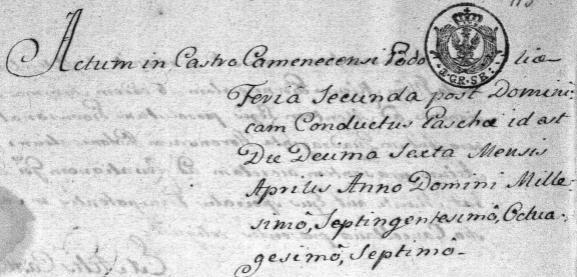 Actum in Castro Camenecensi Podoliæ
Feriâ Secunda post Domini
cam Conductus Paschæ id est
Die Decima Sexta Mensis
Aprilis Anno Domini Mille-
simô, Septingentesimô, Octua-
gesimô, Septimô-